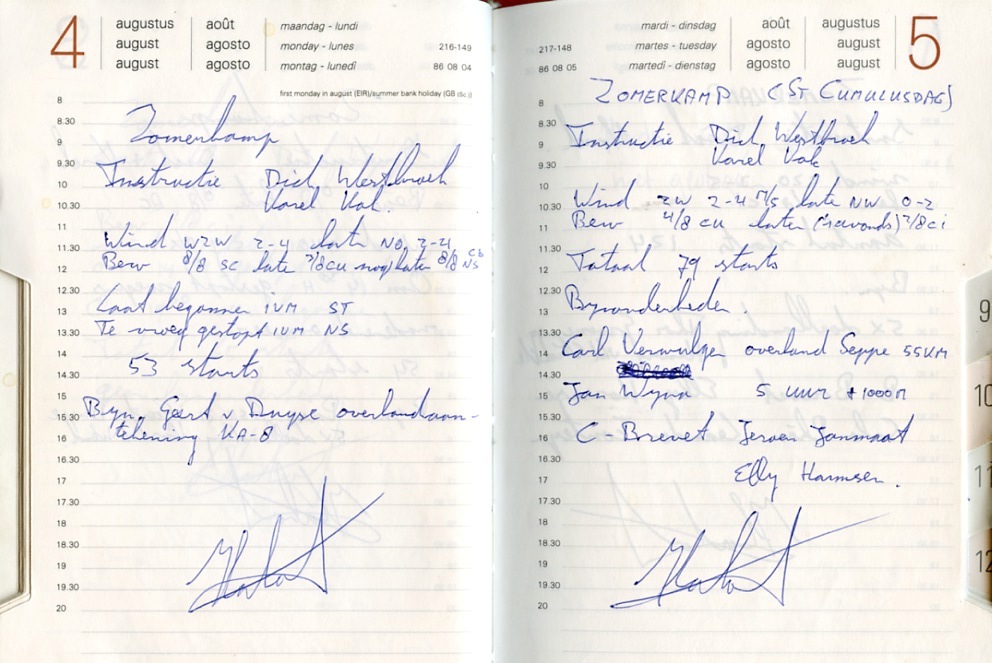 4
augustus août maandag - lundi
august agosto monday - lunes 216-149
august agosto montag - lunedi 86 08 04
first monday in august (EIR)/summer bank holiday (GB (Sc.))
8
8.30
Zomerkamp
9
9.30
Instructie Dick Westbroek
10
Karel Vak.
10.30
11
Wind WZW 2-4 later NO, 2-4
11.30
Bew 8/8 SC later 7/8 CU nog later 8/8 Cb NS
12
12.30
Laat begonnen IVM ST
13
Te vroeg gestopt IVM NS
13.30
14
53 starts
14.30
15
Byz. Geert v Duyse overlandaan-
15.30
tekening KA-8
16
16.30
17
17.30
18
18.30
19
19.30
20
mardi - dinsdag août augustus 5
217-148 martes - tuesday agosto august
86 08 05 martedi - dienstag agosto august
8
ZOMERKAMP (ST CUMULUSDAG)
8.30
Instructie Dick Westbroek
9
Karel Vak
9.30
10
Wind ZW 2-4 M/S later NW 0-2
10.30
Bew 4/8 CU later ('s avonds) 2/8 ci
11
11.30
Totaal 79 starts
12
12.30
Byzonderheden.
13
13.30
Carl overland Seppe 55KM
14
14.30
Jan Wyna 5 UUR +1000M
15
15.30
C-Brevet Jeroen Janmaat
16
16.30
Elly Harmsen.
17
17.30
18
18.30
19
19.30
20
9
10
11
12